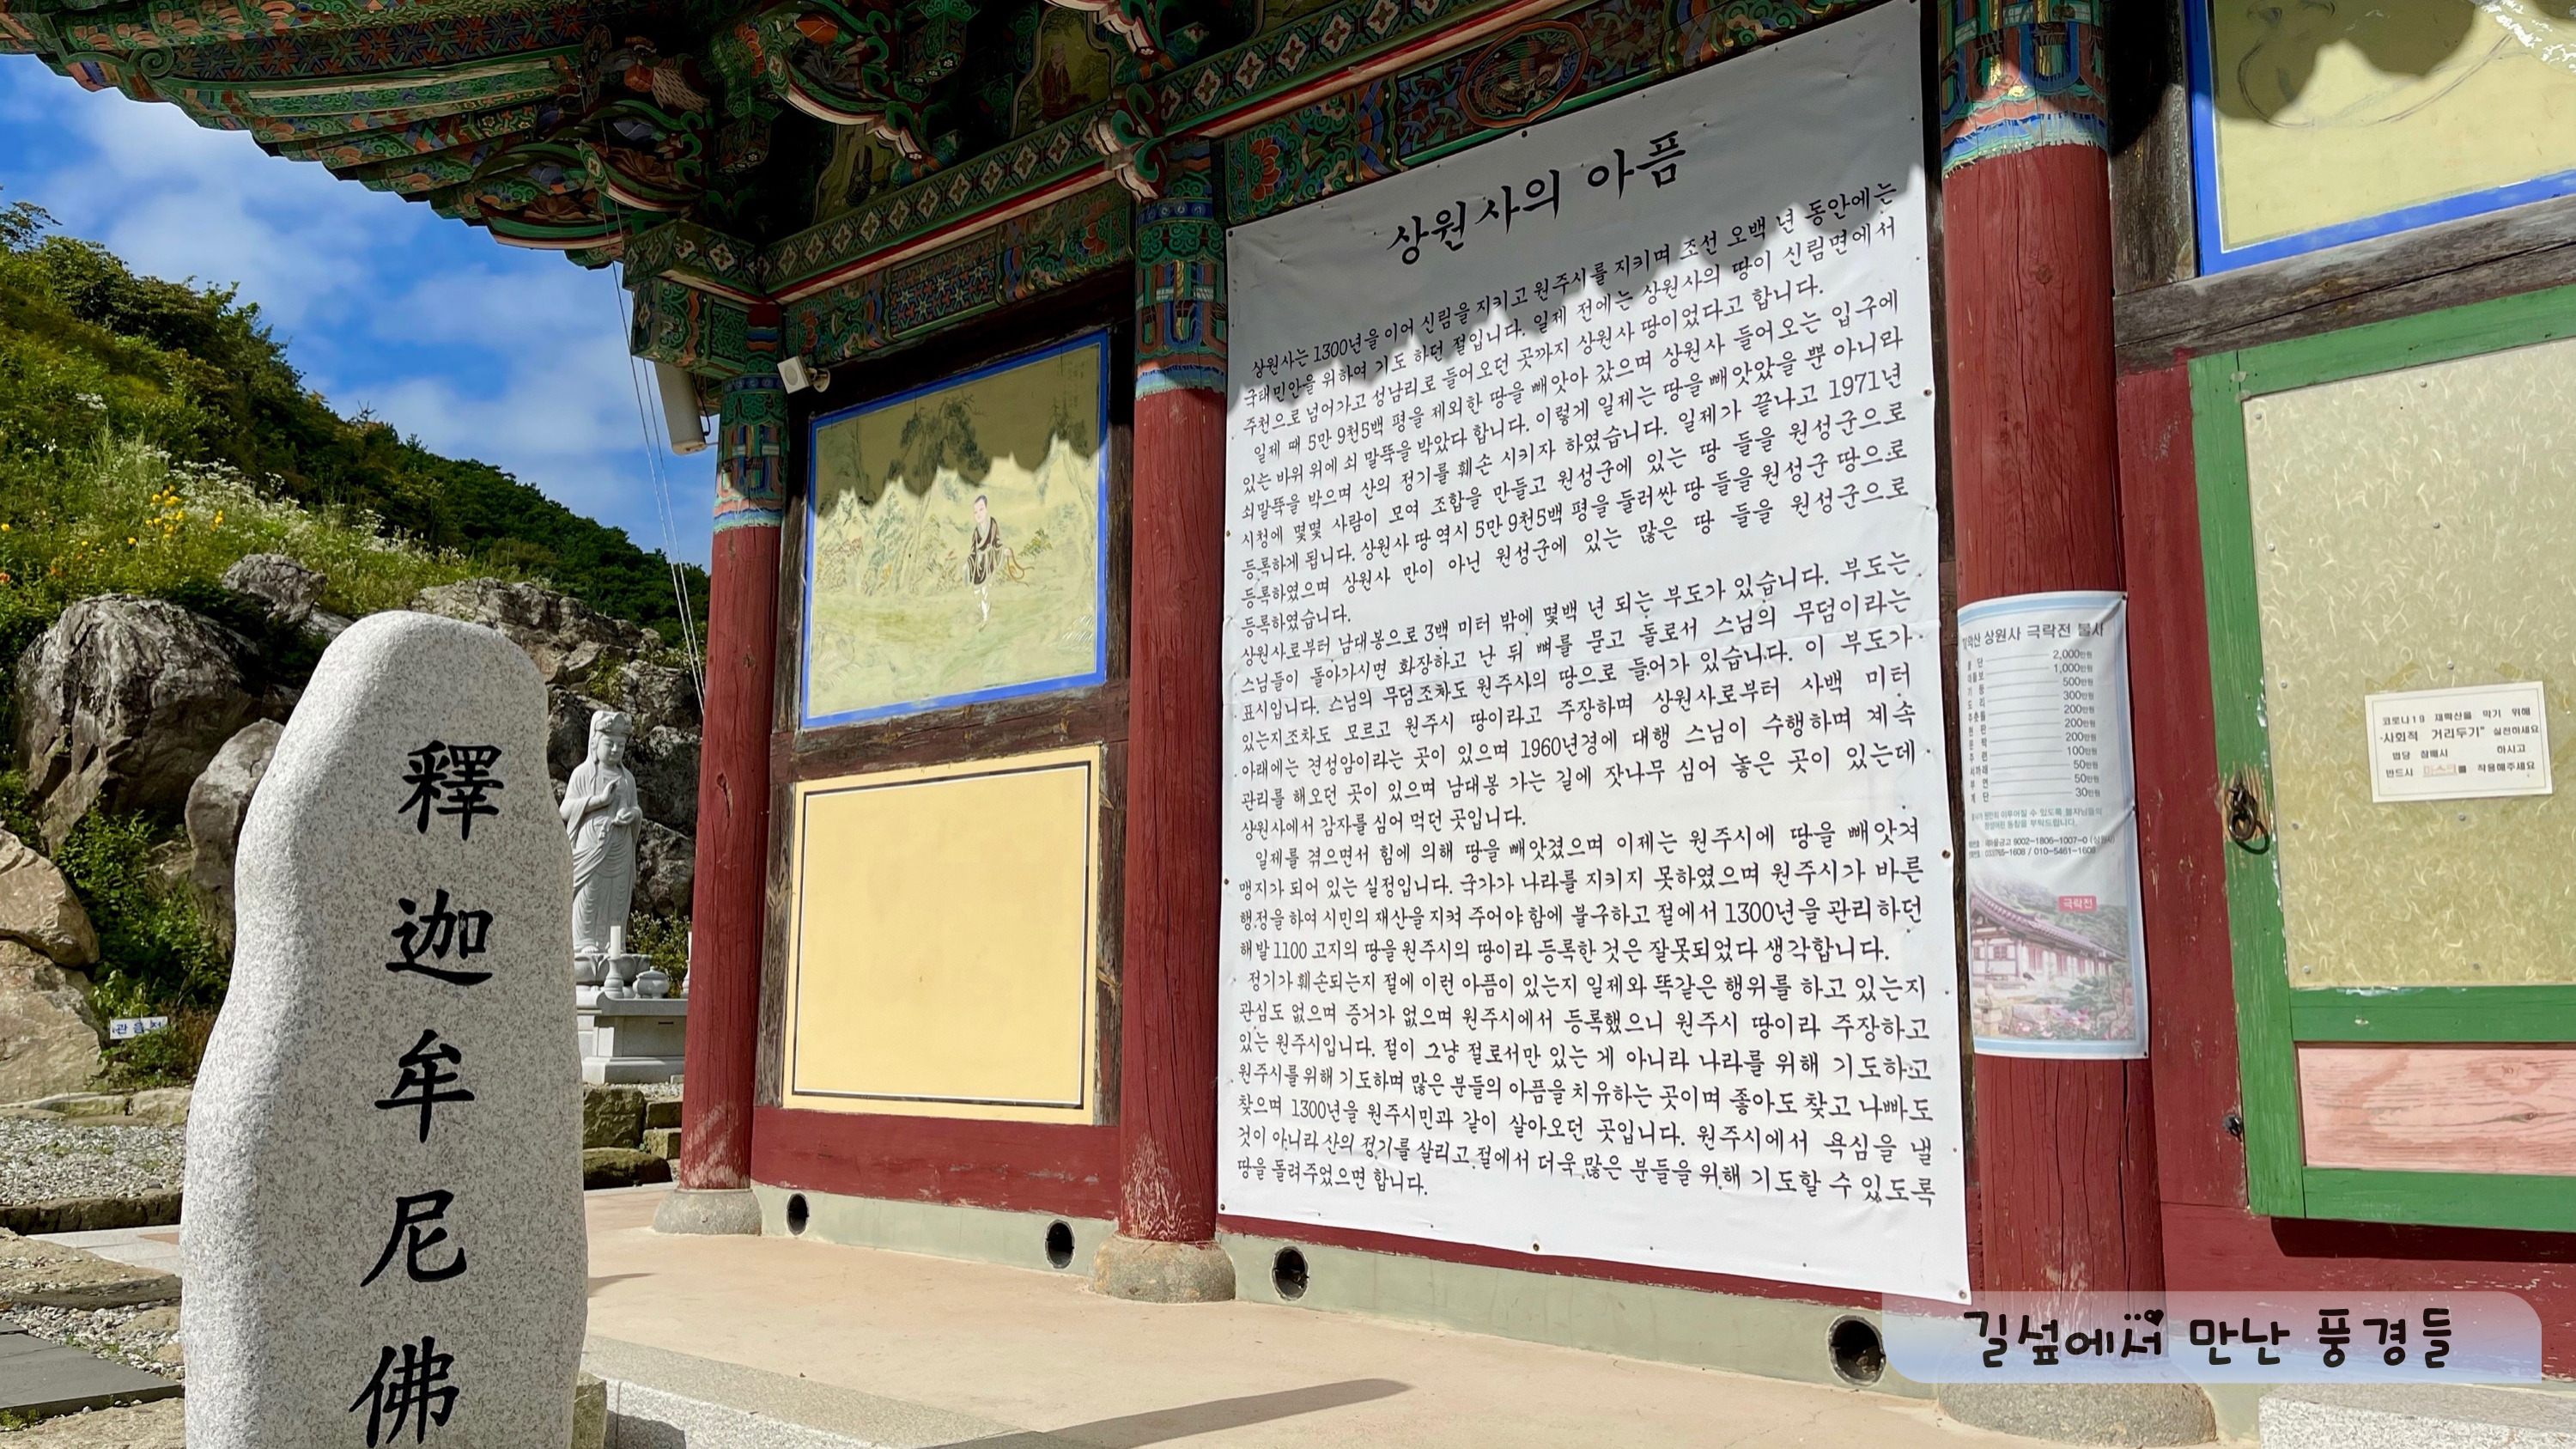 釋
迦
牟
尼
佛
관음전
상원사의 아픔
상원사는 1300년을 이어 신림을 지키고 원주시를 지키며 조선 오백 년 동안에는
국태민안을 위하여 기도 하던 절입니다. 일제 전에는 상원사의 땅이 신림면에서
주천으로 넘어가고 성남리로 들어오던 곳까지 상원사 땅이었다고 합니다.
일제 때 5만 9천5백 평을 제외한 땅을 빼앗아 갔으며 상원사 들어오는 입구에
있는 바위 위에 쇠 말뚝을 박았다 합니다. 이렇게 일제는 땅을 빼앗았을 뿐 아니라
쇠말뚝을 박으며 산의 정기를 훼손 시키자 하였습니다. 일제가 끝나고 1971년
시청에 몇몇 사람이 모여 조합을 만들고 원성군에 있는 땅 들을 원성군으로
등록하게 됩니다. 상원사 땅 역시 5만 9천5백 평을 둘러싼 땅 들을 원성군 땅으로
등록하였으며 상원사 만이 아닌 원성군에 있는 많은 땅 들을 원성군으로
등록하였습니다.
상원사로부터 남대봉으로 3백 미터 밖에 몇백 년 되는 부도가 있습니다. 부도는
스님들이 돌아가시면 화장하고 난 뒤 뼈를 묻고 돌로서 스님의 무덤이라는
표시입니다. 스님의 무덤조차도 원주시의 땅으로 들어가 있습니다. 이 부도가
있는지조차도 모르고 원주시 땅이라고 주장하며 상원사로부터 사백 미터
아래에는 견성암이라는 곳이 있으며 1960년경에 대행 스님이 수행하며 계속
관리를 해오던 곳이 있으며 남대봉 가는 길에 잣나무 심어 놓은 곳이 있는데
상원사에서 감자를 심어 먹던 곳입니다.
일제를 겪으면서 힘에 의해 땅을 빼앗겼으며 이제는 원주시에 땅을 빼앗겨
맹지가 되어 있는 실정입니다. 국가가 나라를 지키지 못하였으며 원주시가 바른
행정을 하여 시민의 재산을 지켜 주어야 함에 불구하고 절에서 1300년을 관리하던
해발 1100 고지의 땅을 원주시의 땅이라 등록한 것은 잘못되었다 생각합니다.
정기가 훼손되는지 절에 이런 아픔이 있는지 일제와 똑같은 행위를 하고 있는지
관심도 없으며 증거가 없으며 원주시에서 등록했으니 원주시 땅이라 주장하고
있는 원주시입니다. 절이 그냥 절로서만 있는 게 아니라 나라를 위해 기도하고
원주시를위해 기도하며 많은 분들의 아픔을 치유하는 곳이며 좋아도 찾고 나빠도
찾으며 1300년을 원주시민과 같이 살아오던 곳입니다. 원주시에서 욕심을 낼
것이 아니라 산의 정기를 살리고 절에서 더욱 많은 분들을 위해 기도할 수 있도록
땅을 돌려주었으면 합니다.
상원사 극락전 불사
2,000만원
1,000만원
500만원
300만원
200만원
200만원
200만원
100만원
50만원
50만원
30만원
9002-1806-1007-0 (상원사)
010-5461-1608
극락전
코로나19 재확산을 막기 위해
"사회적 거리두기" 실천하세요
법당 참배시 하시고
반드시 마스크를 착용해주세요
길섶에서 만난 풍경들